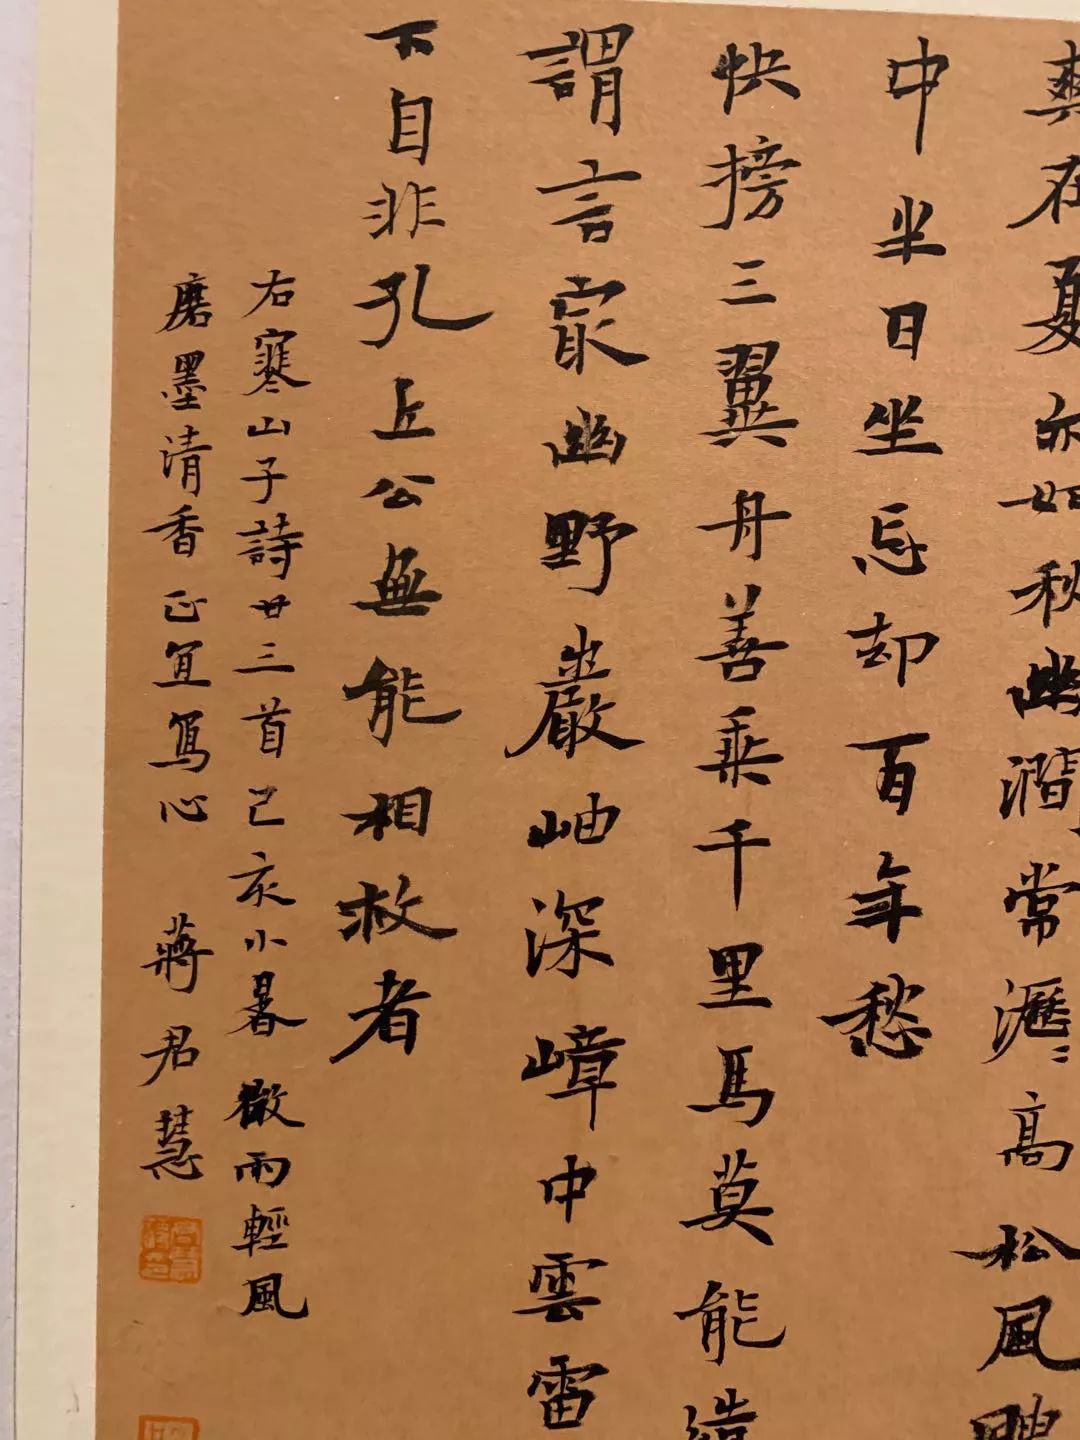 爽在夏亦如秋幽澗常瀝〻高松風
中半日坐忘却百年愁
快搒三翼舟善乘千里馬莫能造
謂言㝡幽野巖岫深嶂中雲雷
下自非孔丘公無能相救者
右寒山子詩廿三首己亥小暑微雨輕風
磨墨清香正宜寫心 蔣君慧